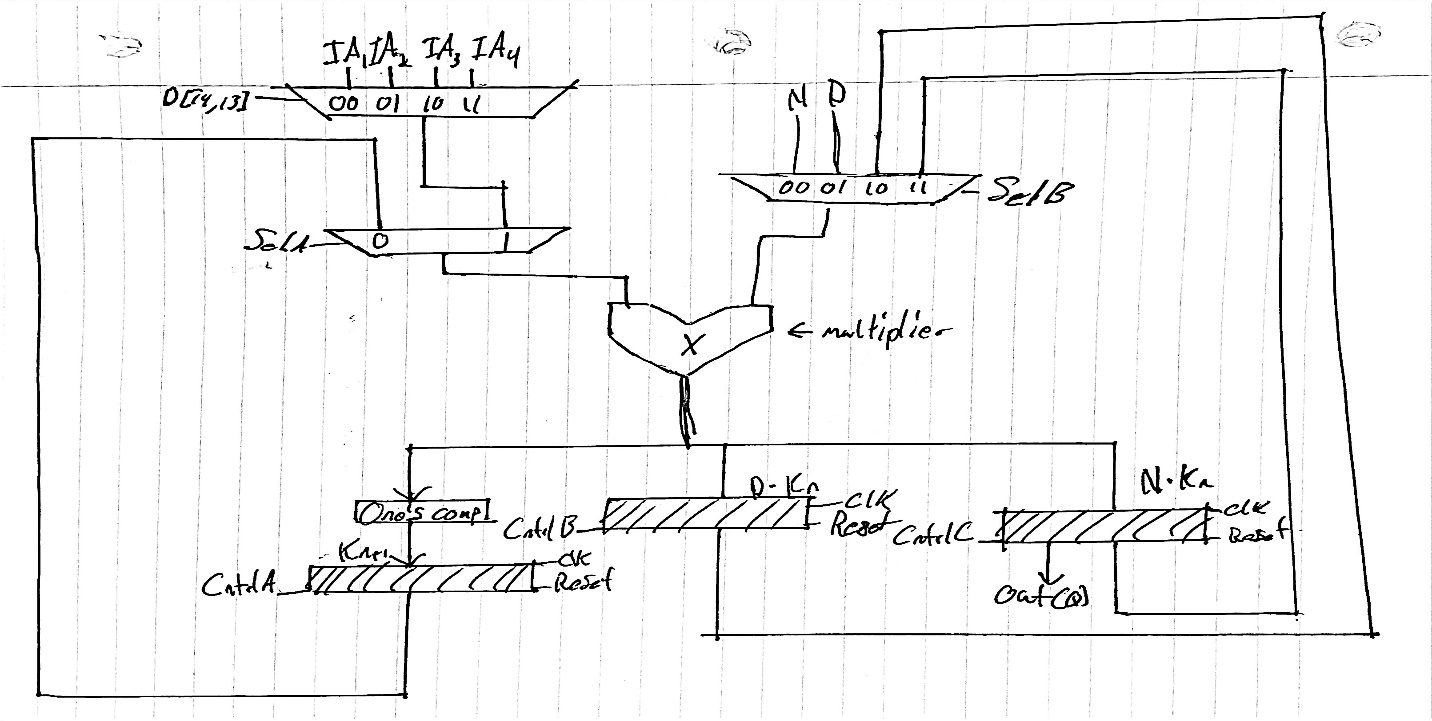 IA1 IA2 IA3 IA4
D[14,13]
00 01 10 11
N D
00 01 10 11
SelB
SelA
0 1
X
← multiplier
D·Kn
N·Kn
One's comp
Cntrl B
CLK
Reset
Cntrl C
CLK
Reset
Kn+1
Cntrl A
CLK
Reset
Out(Q)